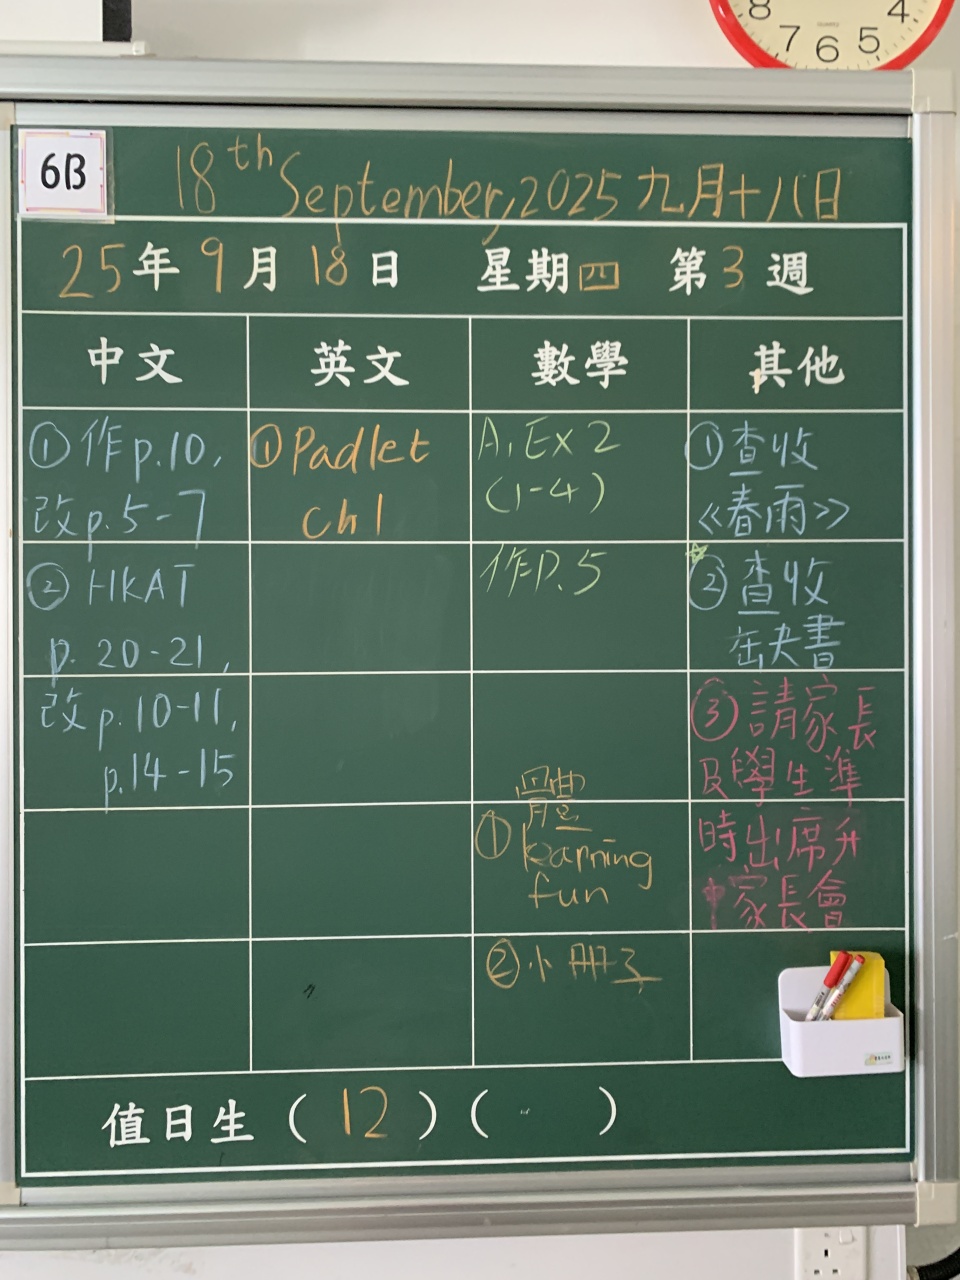 8 7 6 5 4
6B
18th September, 2025 九月十八日
25年9月18日 星期四 第3週
中文
英文
數學
其他
①作p.10,
改p.5-7
②HKAT
p.20-21,
改p.10-11,
p.14-15
①Padlet
ch1
A,Ex2
(1-4)
作P.5
體
① learning
fun
②小冊子
①查收
《春雨》
②查收
缺書
③請家長
及學生準
時出席升
中家長會
值日生(12)( )